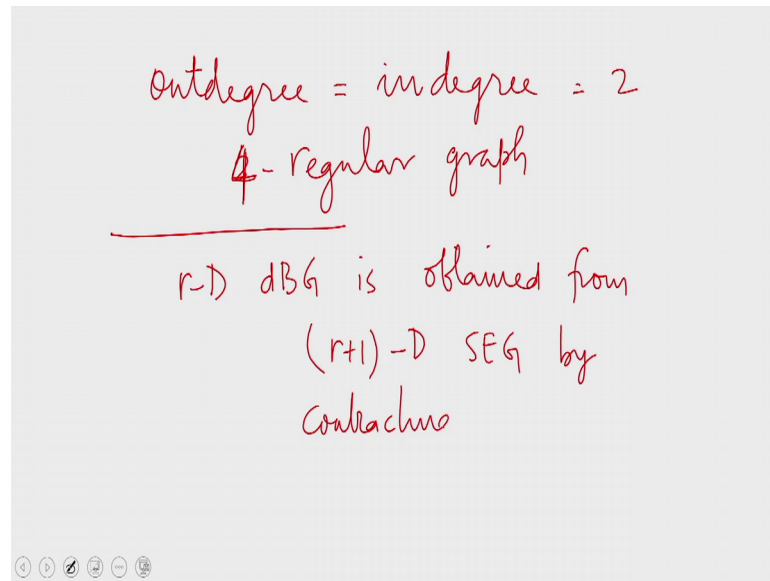 outdegree = indegree = 2
4-regular graph
r-D dBG is obtained from
(r+1)-D SEG by